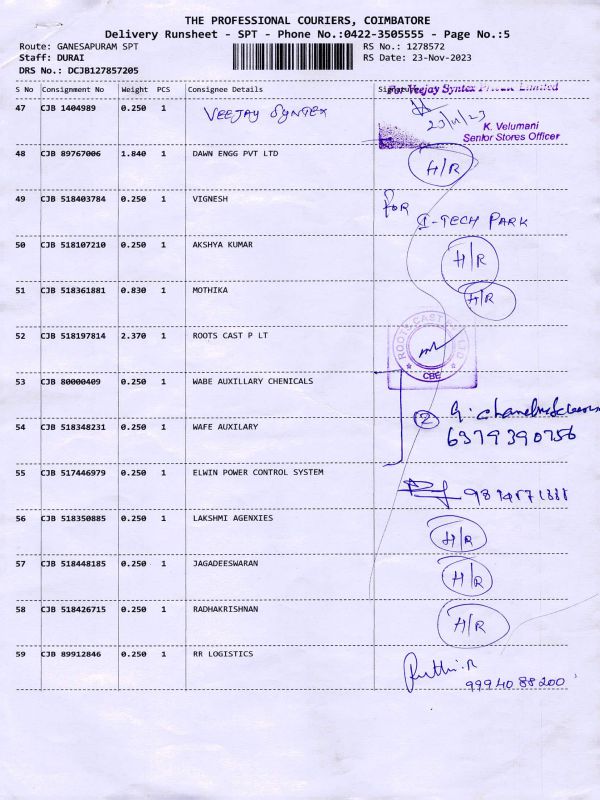 THE PROFESSIONAL COURIERS, COIMBATORE
Delivery Runsheet - SPT - Phone No.:0422-3505555 - Page No.:5
Route: GANESAPURAM SPT RS No.: 1278572
Staff: DURAI RS Date: 23-Nov-2023
DRS No.: DCJB127857205
S No Consignment No Weight PCS Consignee Details Signature
For Veejay Syntex Private Limited
47 CJB 1404989 0.250 1 VEEJAY SYNTEX
23/11/23
K. Velumani
Senior Stores Officer
48 CJB 89767006 1.840 1 DAWN ENGG PVT LTD H/R
49 CJB 518403784 0.250 1 VIGNESH For
I-TECH PARK
50 CJB 518107210 0.250 1 AKSHYA KUMAR H/R
51 CJB 518361881 0.830 1 MOTHIKA H/R
52 CJB 518197814 2.370 1 ROOTS CAST P LT
ROOTS CAST LTD
CBE
53 CJB 80000409 0.250 1 WABE AUXILLARY CHEMICALS
54 CJB 518348231 0.250 1 WAFE AUXILARY 2
6379390756
55 CJB 517446979 0.250 1 ELWIN POWER CONTROL SYSTEM
56 CJB 518350885 0.250 1 LAKSHMI AGENXIES H/R
57 CJB 518448185 0.250 1 JAGADEESWARAN H/R
58 CJB 518426715 0.250 1 RADHAKRISHNAN H/R
59 CJB 89912846 0.250 1 RR LOGISTICS
9994088200